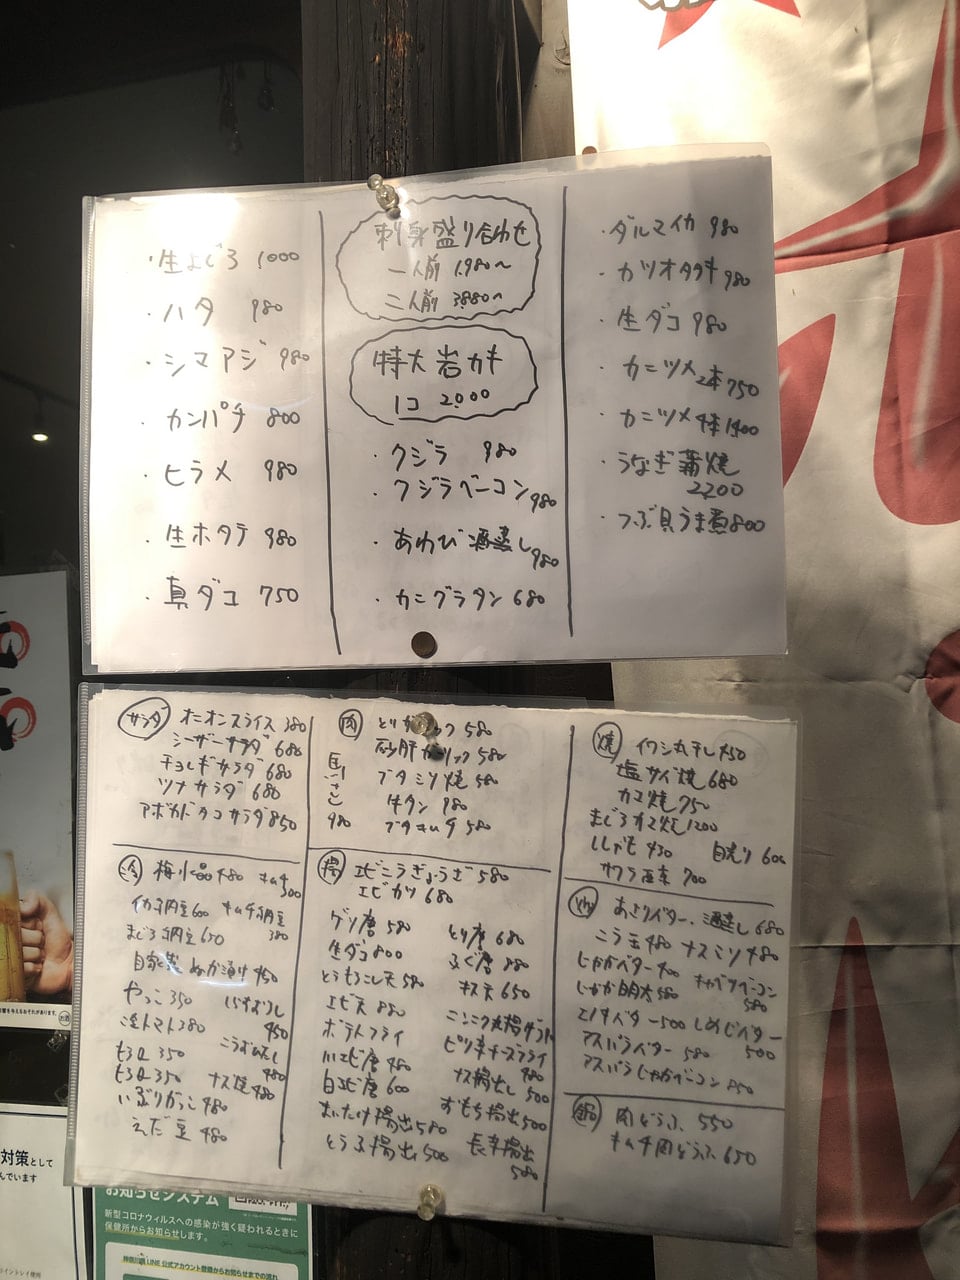 ・生まぐろ 1000
・ハタ 980
・シマアジ 980
・カンパチ 800
・ヒラメ 980
・生ホタテ 980
・真ダコ 750
刺身盛り合わせ
一人前 1.980〜
二人前 3880〜
特大岩カキ
1コ 2000
・クジラ 980
・クジラベーコン 980
・あわび酒蒸し 980
・カニグラタン 680
・ダルマイカ 980
・カツオタタキ 980
・生ダコ 980
・カニツメ 2本 750
・カニツメ 4本 1400
・うなぎ蒲焼
2200
・つぶ貝うま煮 800
サラダ オニオンスライス 380
シーザーサラダ 680
チョレギサラダ 680
ツナサラダ 680
アボカドタコサラダ 850
冷 梅水晶 480 キムチ
300
イカ納豆 600 キムチ納豆
380
まぐろ納豆 650
自家製 ぬか漬け 450
やっこ 350
冷トマト 380
もろQ 350
ナス焼 480
いぶりがっこ 480
えだ豆 480
肉 とりガーリック 580
砂肝ガーリック 580
ブタミソ焼 580
牛タン 980
ブタキムチ 580
馬刺し
980
揚 エビニラぎょうざ 580
エビカツ 680
ゲソ唐 580 とり唐 680
生ダコ 800 ふぐ唐 880
とうもろこし天 580 キス天 650
エビ天 880
ポテトフライ ピリ辛チーズフライ
480
川エビ唐 480 ナス揚出し 500
白エビ唐 600
まいたけ揚出 580 おもち揚出 500
とうふ揚出し 500 長芋揚出
580
焼 イワシ丸干し 450
塩サバ焼 680
カマ焼 750
まぐろカマ焼 1200
ししゃも 430
サワラ西京 700
あさりバター、酒蒸し 680
ニラ玉 480 ナスミソ 480
じゃがバター 400 キャベツベーコン
580
じゃが明太 580
エノキバター 500 しめじバター
500
アスパラバター 580
アスパラじゃがベーコン 850
鍋 肉どうふ 550
キムチ肉どうふ 650
対策として
んでいます
お知らせシステム
新型コロナウイルスへの感染が強く疑われるときに
保健所からお知らせします。
神奈川県LINE公式アカウント登録からお知らせまでの流れ